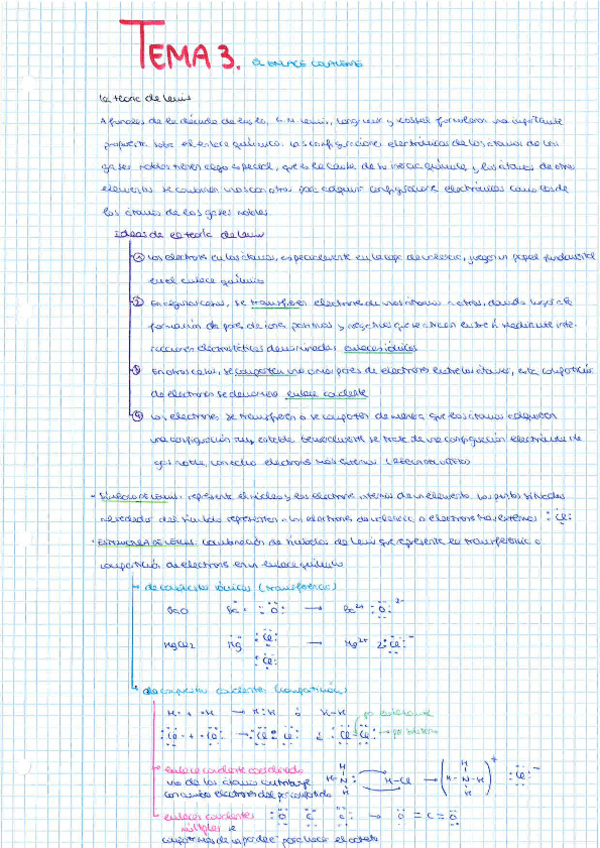 TEMA 3. El enlace covalente
la teoría de Lewis
A finales de la década de los 10, G.N. Lewis, Langmuir y Kossel formularon una importante
propuesta sobre el enlace químico. Las configuraciones electrónicas de los átomos de los
gases nobles tienen algo especial, que es la causa de su inercia química, y los átomos de otros
elementos se combinan unos con otros para adquirir configuraciones electrónicas como las de
los átomos de los gases nobles.
ideas de la teoría de Lewis
① Los electrones en los átomos, especialmente en la capa de valencia, juegan un papel fundamental
en el enlace químico
② En algunos casos, se transfieren electrones de unos átomos a otros, dando lugar a la
formación de pares de iones positivos y negativos que se atraen entre sí mediante inte-
racciones electrostáticas denominadas enlaces iónicos
③ En otros casos, se comparten uno o más pares de electrones entre los átomos, esta compartición
de electrones se denomina enlace covalente
④ Los electrones se transfieren o se comparten de manera que los átomos adquieren
una configuración muy estable. Generalmente se trata de una configuración electrónica de
gas noble, con ocho electrones más externos (REGLA DEL OCTETO)
- SÍMBOLO DE LEWIS: representa el núcleo y los electrones internos de un elemento. Los puntos situados
alrededor del símbolo representan a los electrones de valencia o electrones más externos :Cl:
- ESTRUCTURA DE LEWIS: combinación de símbolos de Lewis que representa la transferencia o
compartición de electrones en un enlace químico
de compuestos iónicos (transferencia)
BaO Ba· :O: → Ba²⁺ :O:²⁻
MgCl2 Mg :Cl: :Cl: → Mg²⁺ 2:Cl:⁻
de compuestos covalentes (compartición)
H· + ·H → H:H ó H-H par enlazante
:Cl· + ·Cl: → :Cl:Cl: :Cl-Cl: → par solitario
enlace covalente coordinado
uno de los átomos contribuye
con ambos electrones del par compartido
H-N: H H H-Cl → (H-N-H H H)⁺ :Cl:⁻
enlaces covalentes :O C O: → O=C=O
múltiples se
comparten más de un par de e⁻ para lograr el octeto